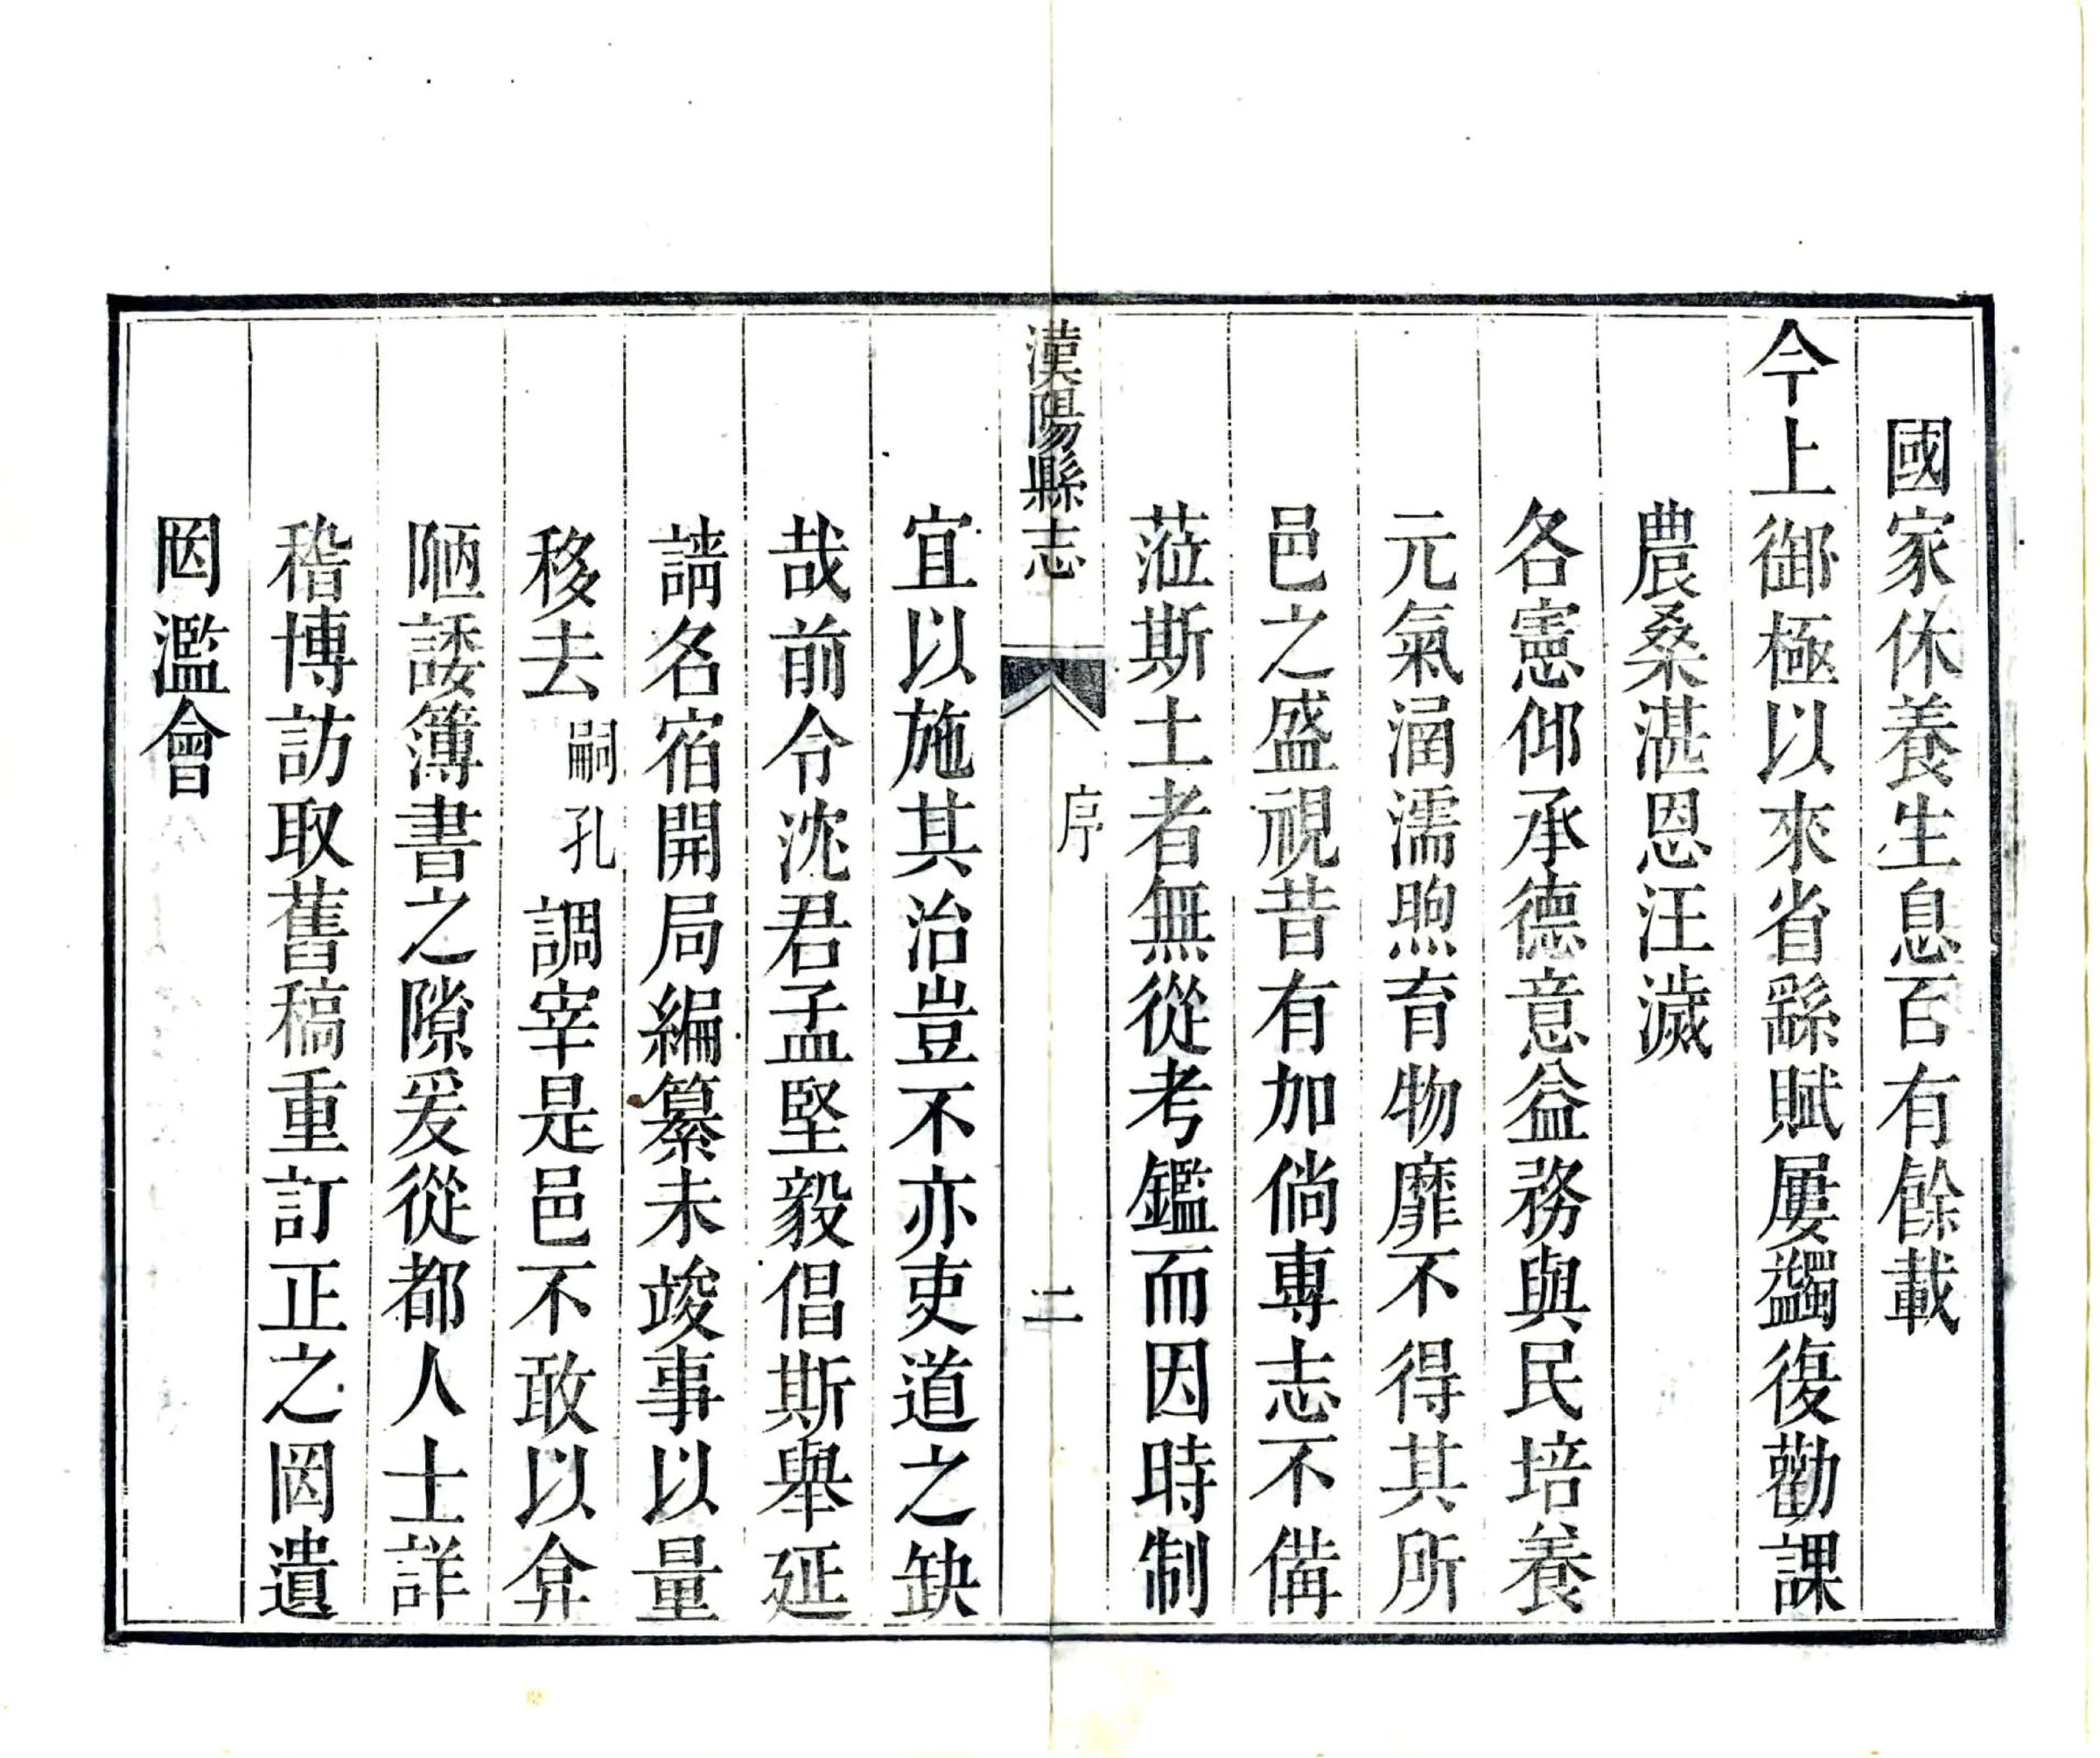 國家休養生息百有餘載
今上御極以來省繇賦屢蠲復勸課
農桑湛恩汪濊
各憲仰承德意益務與民培養
元氣涵濡煦育物靡不得其所
邑之盛視昔有加倘專志不備
蒞斯土者無從考鑑而因時制
漢陽縣志 序 二
宜以施其治豈不亦吏道之缺
哉前令沈君孟堅毅倡斯舉延
請名宿開局編纂未竣事以量
移去嗣孔調宰是邑不敢以弇
陋諉簿書之隙爰從都人士詳
稽博訪取舊稿重訂正之罔遺
罔濫會